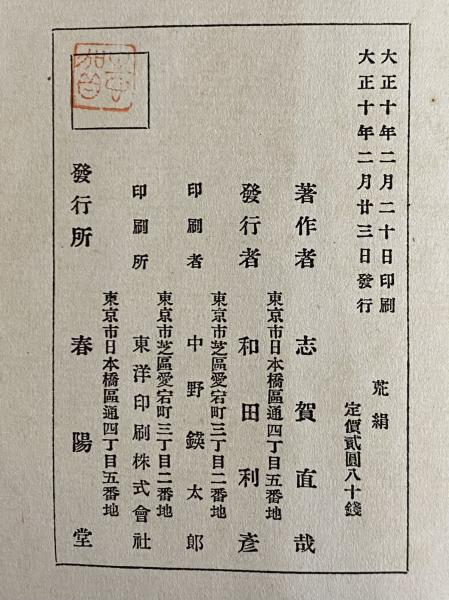 大正十年二月二十日印刷
大正十年二月廿三日發行
荒絹
定價貳圓八十錢
著作者 志賀直哉
東京市日本橋區通四丁目五番地
發行者 和田利彥
東京市芝區愛宕町三丁目二番地
印刷者 中野鍈太郎
東京市芝區愛宕町三丁目二番地
印刷所 東洋印刷株式會社
東京市日本橋區通四丁目五番地
發行所 春陽堂